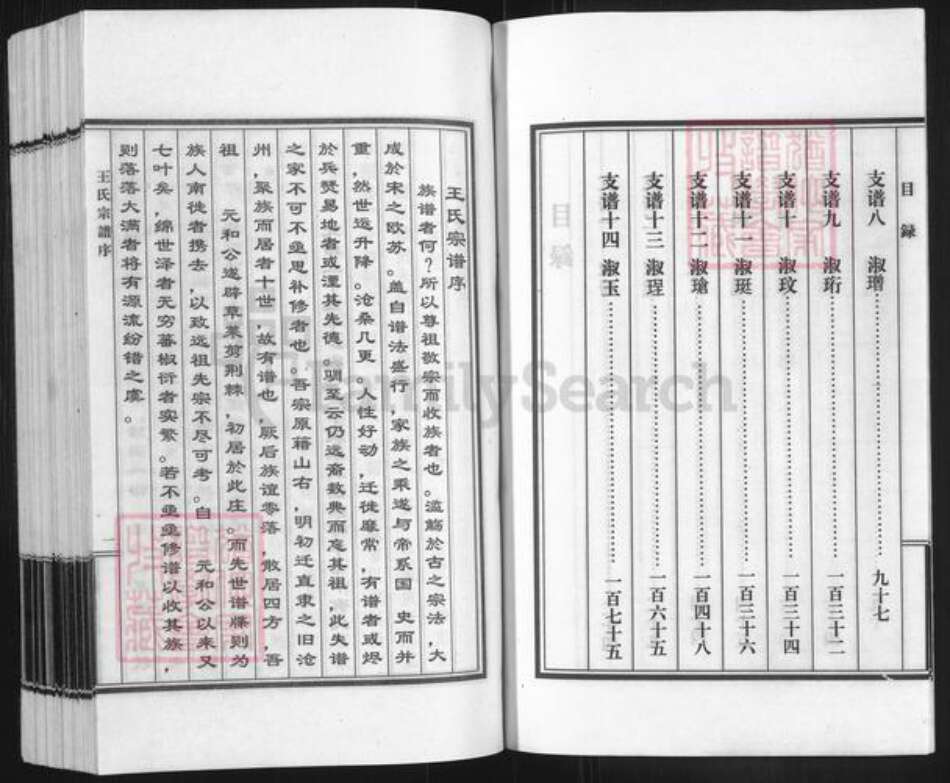 目録
支谱八 淑璔 九十七
支谱九 淑珩 一百三十二
支谱十 淑玟 一百三十四
支谱十一 淑珽 一百三十六
支谱十二 淑瑲 一百四十八
支谱十三 淑珵 一百六十五
支谱十四 淑玉 一百七十五
王氏宗谱序
族谱者何？所以尊祖敬宗而收族者也。滥觞於古之宗法，大
成於宋之欧苏。盖自谱法盛行，家族之乘遂与帝系国 史而并
重，然世运升降。沧桑几更。人性好动，迁徙靡常，有谱者或烬
於兵燹易地者或湮其先德。驯至云仍远裔数典而忘其祖，此失谱
之家不可不亟思补修者也。吾宗原籍山右，明初迁直隶之旧沧
州，聚族而居者十世，故有谱也，厥后族谊零落，散居四方，吾
祖 元和公遂辟草莱剪荆棘，初居於此庄。而先世谱牒则为
族人南徙者携去，以致远祖先宗不尽可考。自 元和公以来又
七叶矣，绵世泽者无穷蕃椒衍者实繁。若不亟亟修谱以收其族，
则落落大满者将有源流纷错之虞。
王氏宗譜序
一
FamilySearch